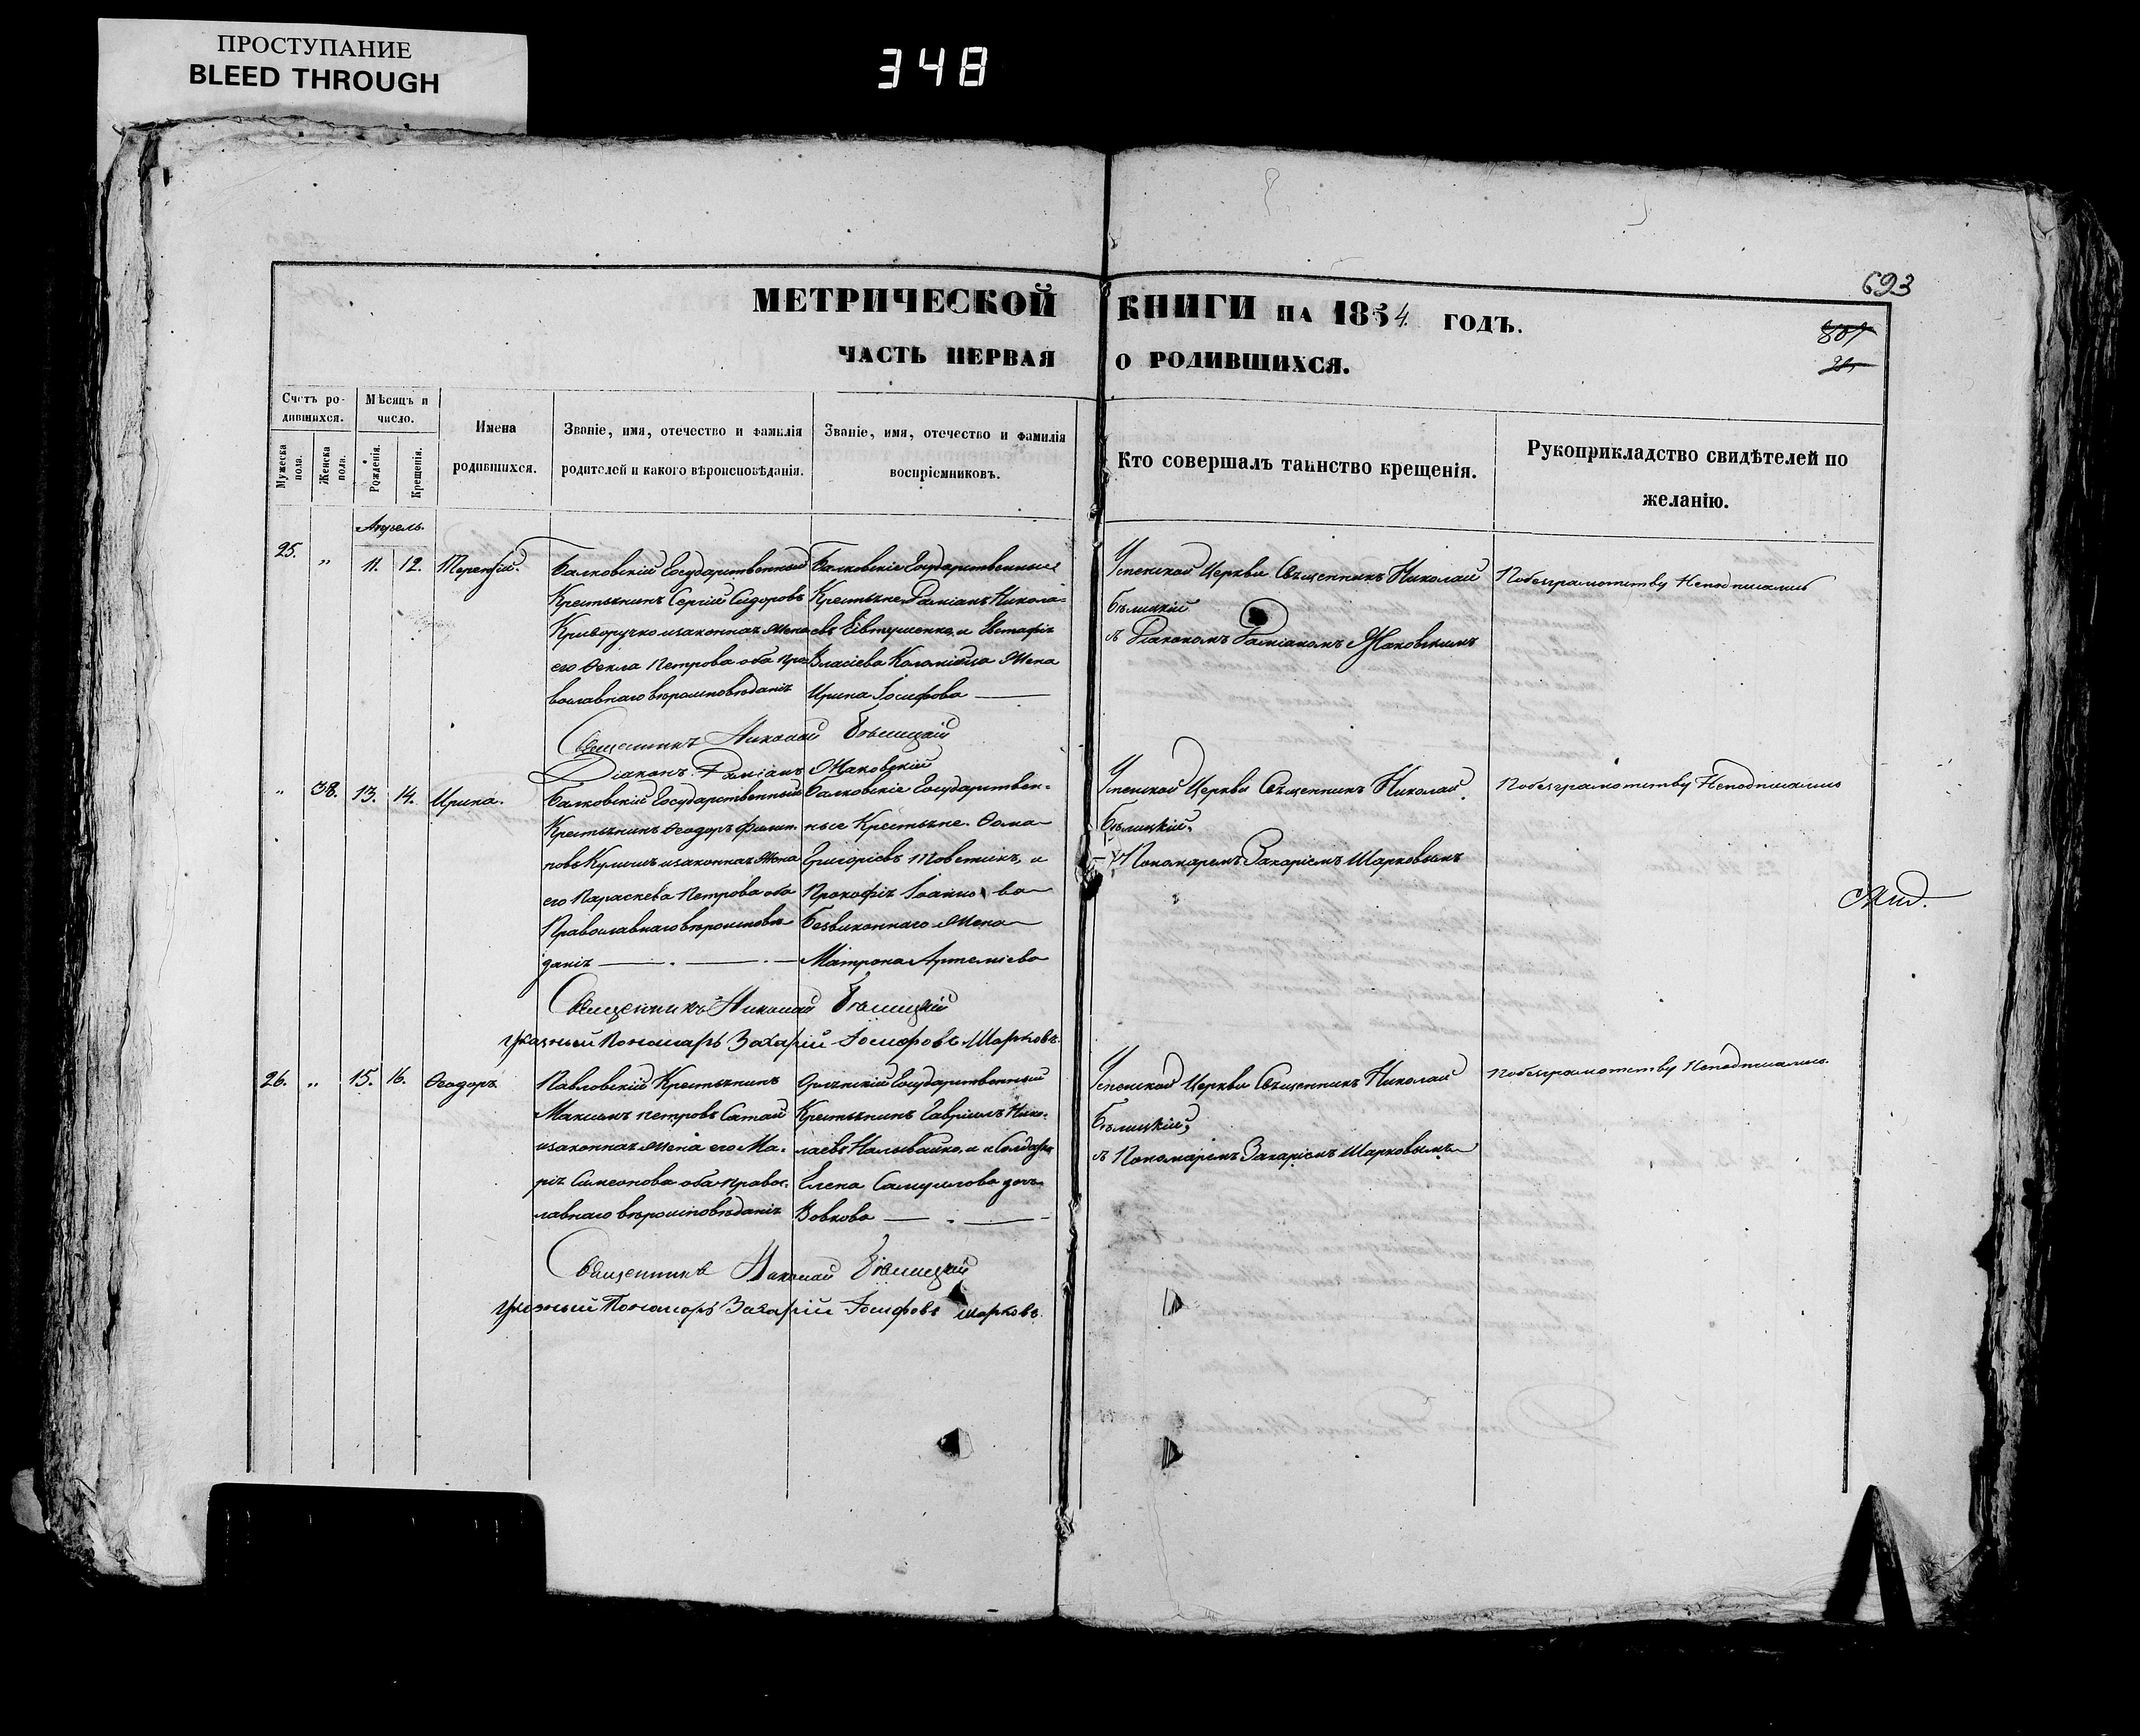 ПРОСТУПАНИЕ
BLEED THROUGH
348
693
МЕТРИЧЕСКОЙ КНИГИ НА 1854 ГОДЪ.
ЧАСТЬ ПЕРВАЯ О РОДИВШИХСЯ.
Счетъ ро-
дившихся.
Мужеска пола.
Женска пола.
Мѣсяцъ и
число.
Рожденія.
Крещенія.
Имена
родившихся.
Званіе, имя, отечество и фамилія
родителей и какого вѣроисповѣданія.
Званіе, имя, отечество и фамилія
воспріемниковъ.
Кто совершалъ таинство крещенія.
Рукоприкладство свидѣтелей по
желанію.
Апрель.
25. " 11. 12. Терентій.
Балковскій Государственный
Крестьянинъ Сергій Сидоровъ
Криворучко и законная жена
его Ѳекла Петрова оба пра
вославнаго вѣроисповѣданія
Балковскіе Государственные
Крестьяне Даміанъ Никола=
евъ Евтушенко, и Евстафія
Власіева Коломійца жена
Ирина Іосифова
Успенской Церкви Священникъ Николай
Бѣлицкій
съ Діакономъ Даміаномъ Маковскимъ
По безграмотству Неподписались
Священникъ Николай Бѣлицкій
Діаконъ Даміанъ Маковскій
" 38. 13. 14. Ирина.
Балковскій Государственный
Крестьянинъ Ѳеодоръ Филип.
повъ и законная жена
его Параскева Петрова оба
Православнаго вѣроисповѣ
данія
Балковскіе Государствен-
ные Крестьяне. Ѳома
Григоріевъ и
Прокофія Іоанно ва
Безвиконнаго жена
Матрона Артеміева
Успенской Церкви Священникъ Николай
Бѣлицкій,
съ Пономаремъ Захаріемъ Шарковымъ
По безграмотству Неподписались
Священникъ Николай Бѣлицкій
указный Пономарь Захарій Іосифовъ Шарковъ.
26. " 15. 16. Ѳеодоръ
Павловскій Крестьянинъ
Максимъ Петровъ
и законная жена его Ма-
рія Симеонова оба правос-
лавнаго вѣроисповѣданія
Государственный
Крестьянинъ Гавріилъ Нико-
лаевъ Наливайко, и Солдатка
Елена Самуилова дочь
Вовкова
Успенской Церкви Священникъ Николай
Бѣлицкій,
съ Пономаремъ Захаріемъ Шарковымъ
По безграмотству Неподписались
Священникъ Николай Бѣлицкій
указный Пономарь Захарій Іосифовъ Шарковъ.